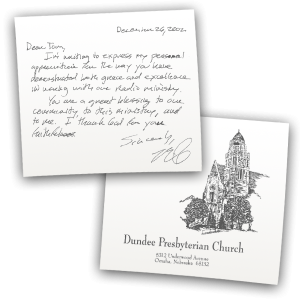 December 26, 2002
Dear Tom,
I'm writing to express my personal
appreciation for the way you have
demonstrated both grace and excellence
in working with our radio ministry.
You are a great blessing to our
community, to this ministry, and
to me. I thank God for your
Sincerely,
Dundee Presbyterian Church
5312 Underwood Avenue
Omaha, Nebraska 68132